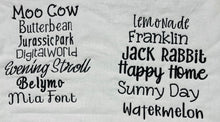 Moo Cow
Butterbean
JurassicPark
DigitalWorld
Evening Stroll
Belymo
Mia Font
lemonade
Franklin
JACK RABBIT
Happy Home
Sunny Day
Watermelon